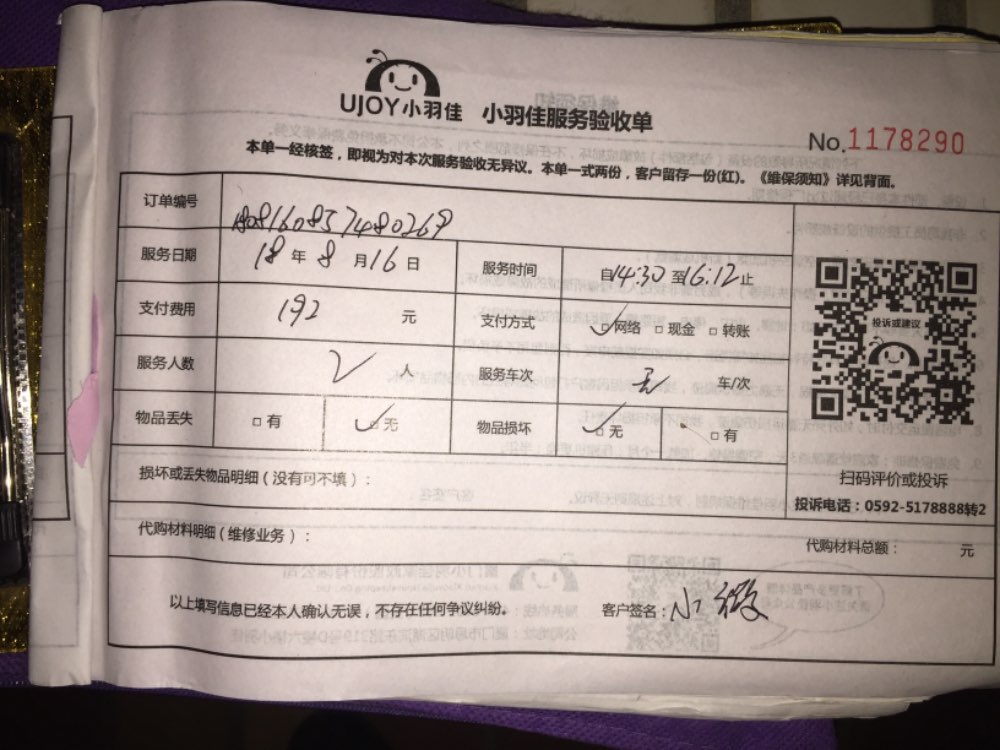 UJOY小羽佳 小羽佳服务验收单
No.1178290
本单一经核签，即视为对本次服务验收无异议。本单一式两份，客户留存一份(红)。《维保须知》详见背面。
订单编号 1808160857480269
服务日期 18年8月16日 服务时间 自14:30至16:12止
支付费用 192 元 支付方式 ✓□网络 □现金 □转账
服务人数 2 人 服务车次 无 车/次
物品丢失 □有 ✓□无 物品损坏 ✓□无 □有
投诉或建议
扫码评价或投诉
投诉电话：0592-5178888转2
损坏或丢失物品明细（没有可不填）：
代购材料明细（维修业务）：
代购材料总额： 元
以上填写信息已经本人确认无误，不存在任何争议纠纷。 客户签名：